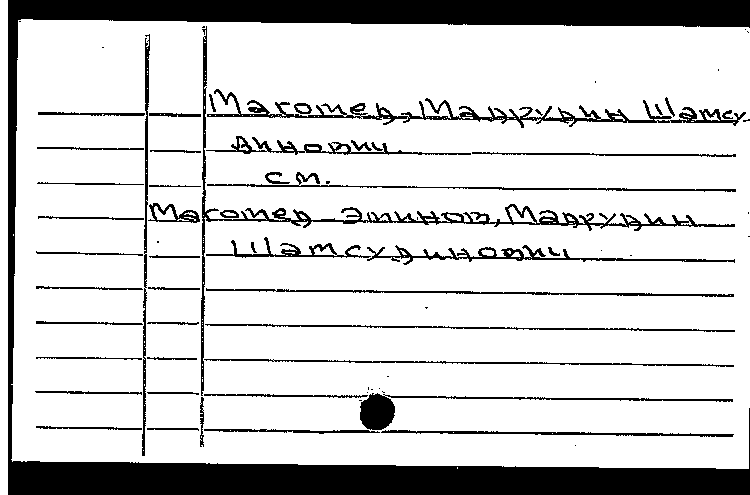 Магомед, Мадрудин Шамсу
динович.
см.
Магомед-Эминов, Мадрудин
Шамсудинович